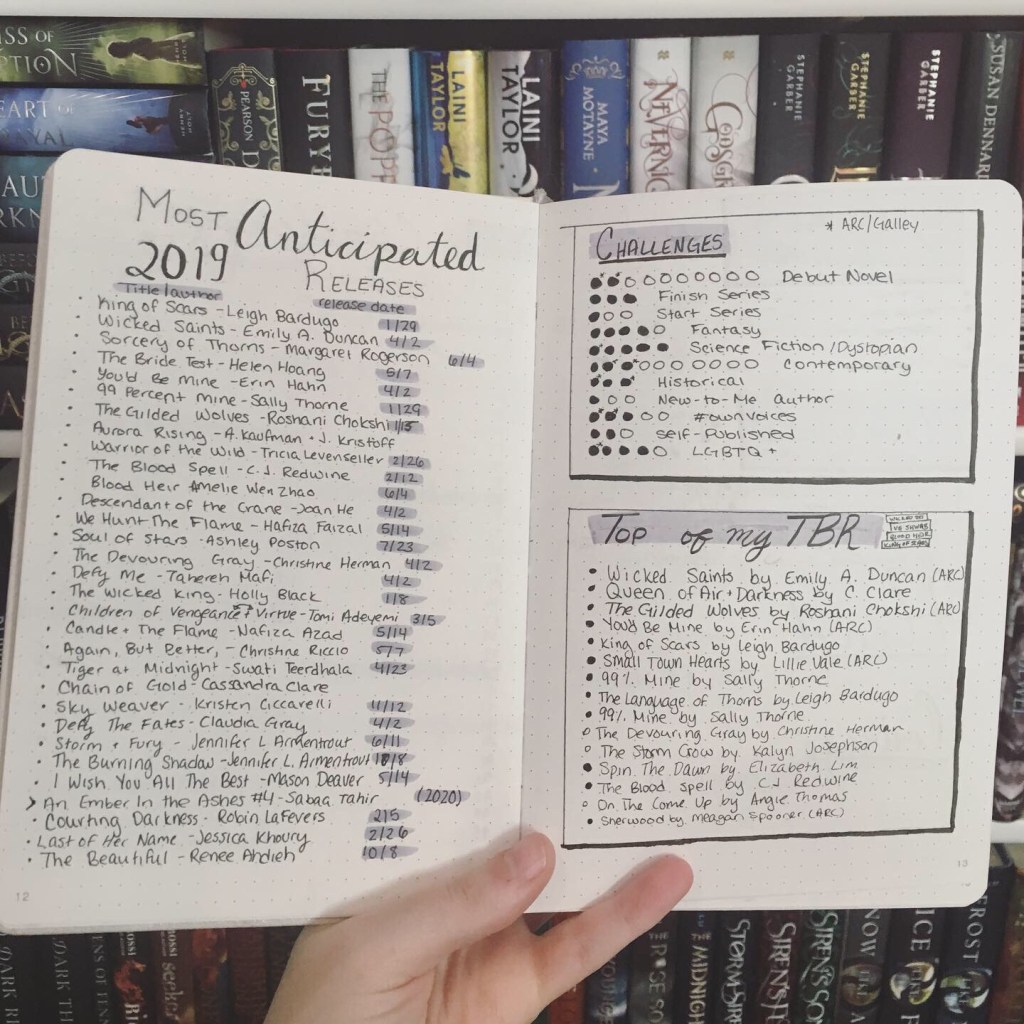 ISS OF
PTION
EART OF
YAL
PEARSON
FURY
THE POPP
LAINI
TAYLOR
LAINI
TAYLOR
MAYA
MOTAYNE
NEVERNI
GODSGR
STEPHANIE
GARBER
STEPHANIE
GARBER
STEPHANIE
GARBER
SUSAN DENNARD
MOST Anticipated
2019 RELEASES
Title/author release date
King of Scars - Leigh Bardugo 1/29
Wicked Saints - Emily A. Duncan 4/2
Sorcery of Thorns - Margaret Rogerson 6/4
The Bride Test - Helen Hoang 5/7
You'd Be Mine - Erin Hahn 4/2
99 Percent Mine - Sally Thorne 1/29
The Gilded Wolves - Roshani Chokshi 1/15
Aurora Rising - A. Kaufman + J. Kristoff
Warrior of the Wild - Tricia Levenseller 2/26
The Blood Spell - C.J. Redwine 2/12
Blood Heir Amelie Wen Zhao 6/4
Descendant of the Crane - Joan He 4/2
We Hunt The Flame - Hafiza Faizal 5/14
Soul of Stars - Ashley Poston 7/23
The Devouring Gray - Christine Herman 4/2
Defy Me - Tahereh Mafi 4/2
The Wicked King - Holly Black 1/8
Children of Vengeance & Virtue - Tomi Adeyemi 3/5
Candle + The Flame - Nafiza Azad 5/14
Again, But Better, - Christine Riccio 5/7
Tiger at Midnight - Swati Teerdhala 4/23
Chain of Gold - Cassandra Clare
Sky Weaver - Kristen Ciccarelli 11/12
Defy The Fates - Claudia Gray 4/2
Storm + Fury - Jennifer L Armentrout 6/11
The Burning Shadow - Jennifer L. Armentrout 10/8
I Wish You All The Best - Mason Deaver 5/14
An Ember In the Ashes #4 - Sabaa Tahir (2020)
Courting Darkness - Robin LaFevers 2/5
Last of Her Name - Jessica Khoury 2/26
The Beautiful - Renee Ahdieh 10/8
12
* ARC/Galley
CHALLENGES
Debut Novel
Finish Series
Start Series
Fantasy
Science Fiction/Dystopian
Contemporary
Historical
New-to-Me author
#ownvoices
Self-Published
LGBTQ+
TOP of my TBR
Wicked Saints by Emily A. Duncan (ARC)
Queen of Air + Darkness by C. Clare
The Gilded Wolves by Roshani Chokshi (ARC)
You'd Be Mine by Erin Hahn (ARC)
King of Scars by Leigh Bardugo
Small Town Hearts by Lillie Vale (ARC)
99% Mine by Sally Thorne
The Language of Thorns by Leigh Bardugo
99% Mine by Sally Thorne
The Devouring Gray by Christine Herman
The Storm Crow by Kalyn Josephson
Spin The Dawn by Elizabeth Lim
The Blood Spell by C.J. Redwine
On The Come Up by Angie Thomas
Sherwood by Meagan Spooner (ARC)
13
DARK TH
seeke
ROSE SO
MIDNIGH
STORM SIR
SIREN'S
SIREN'S SON
NOW
ICE
FROST